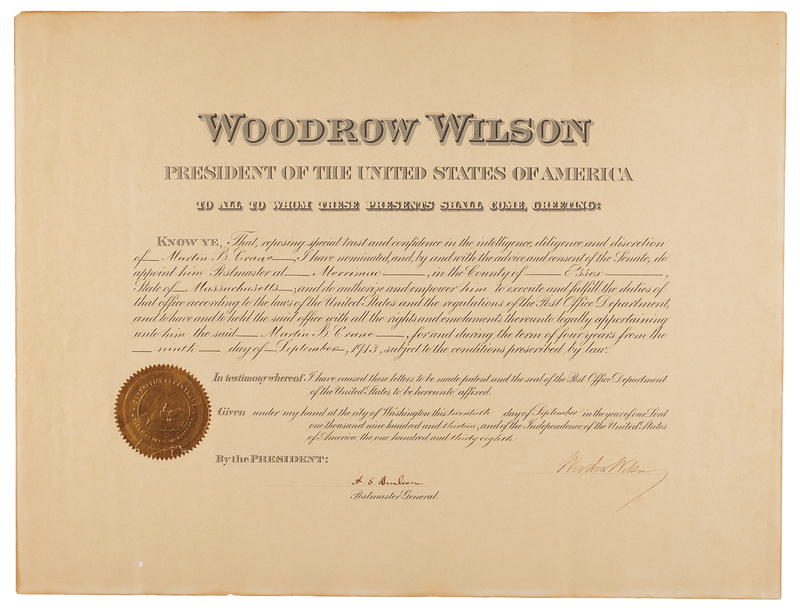 WOODROW WILSON
PRESIDENT OF THE UNITED STATES OF AMERICA
TO ALL TO WHOM THESE PRESENTS SHALL COME, GREETING:
KNOW YE, That, reposing special trust and confidence in the intelligence, diligence and discretion
of Martin B. Crane, I have nominated, and, by and with the advice and consent of the Senate, do
appoint him Postmaster at Merrimac, in the County of Essex,
State of Massachusetts, and do authorize and empower him to execute and fulfill the duties of
that office according to the laws of the United States and the regulations of the Post Office Department,
and to have and to hold the said office with all the rights and emoluments thereunto legally appertaining
unto him the said Martin B. Crane, for and during the term of four years from the
ninth day of September, 1913, subject to the conditions prescribed by law.
In testimony whereof I have caused these letters to be made patent and the seal of the Post Office Department
of the United States to be hereunto affixed.
Given under my hand at the city of Washington this twentieth day of September in the year of our Lord
one thousand nine hundred and thirteen, and of the Independence of the United States
of America the one hundred and thirty eighth.
By the PRESIDENT:
Woodrow Wilson
A S Burleson
Postmaster General.